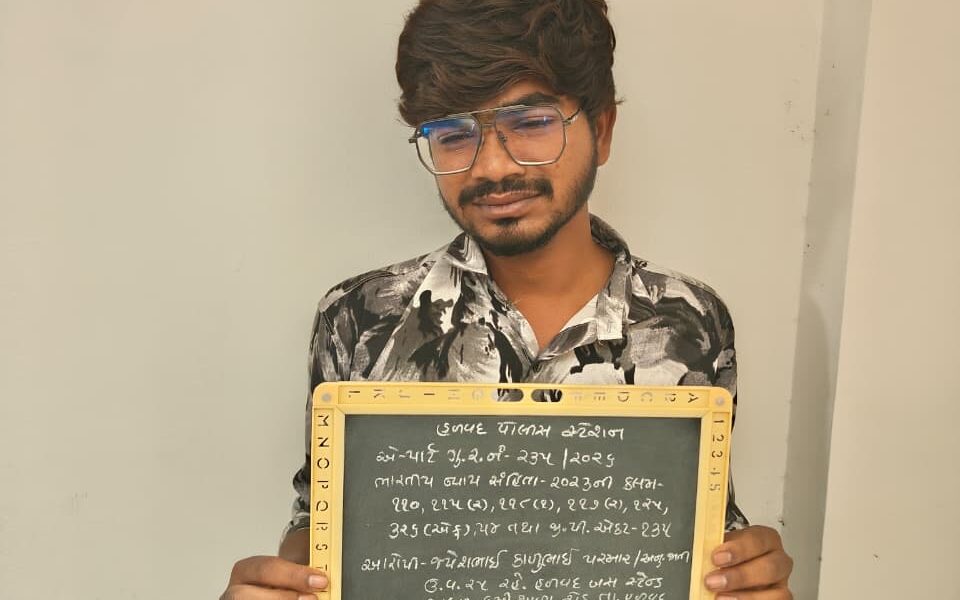 L K J I H G F E D C B A
M N O P Q R S T
1 2 3 4 5
હળવદ પોલીસ સ્ટેશન
એ-પાર્ટ ગુ.ર.નં- ૨૩૫/૨૦૨૬
ભારતીય ન્યાય સંહિતા-૨૦૨૩ની કલમ-
૧૧૦, ૧૧૫(૨), ૧૧૮(૧), ૧૧૭(૨), ૧૨૫,
૩૨૬(એફ), ૫૪ તથા જી.પી.એક્ટ-૧૩૫
આરોપી- જયેશભાઈ કાળુભાઈ પરમાર/અનુ.જાતી
ઉ.વ.૨૫ રહે. હળવદ બસ સ્ટેન્ડ